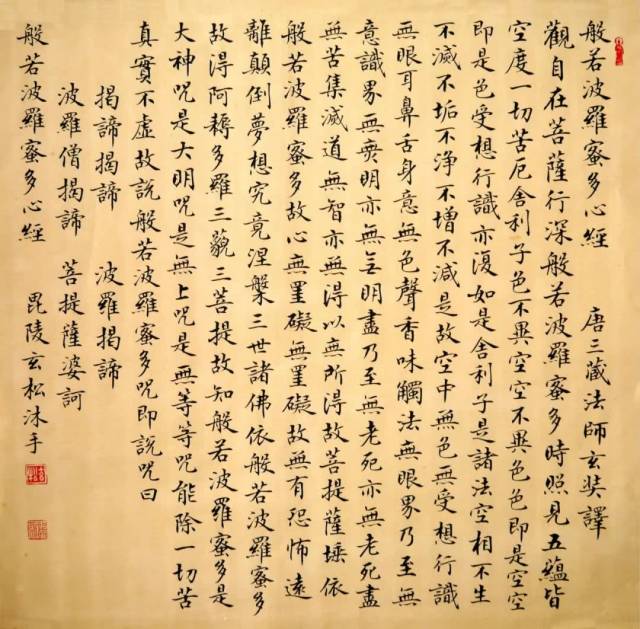 般若波羅蜜多心經 唐三藏法師玄奘譯
觀自在菩薩行深般若波羅蜜多時照見五蘊皆
空度一切苦厄舍利子色不異空空不異色色即是空空
即是色受想行識亦復如是舍利子是諸法空相不生
不滅不垢不淨不增不減是故空中無色無受想行識
無眼耳鼻舌身意無色聲香味觸法無眼界乃至無
意識界無無明亦無無明盡乃至無老死亦無老死盡
無苦集滅道無智亦無得以無所得故菩提薩埵依
般若波羅蜜多故心無罣礙無罣礙故無有恐怖遠
離顛倒夢想究竟涅槃三世諸佛依般若波羅蜜多
故得阿耨多羅三藐三菩提故知般若波羅蜜多是
大神咒是大明咒是無上咒是無等等咒能除一切苦
真實不虛故說般若波羅蜜多咒即說咒曰
揭諦揭諦 波羅揭諦
波羅僧揭諦 菩提薩婆訶
般若波羅蜜多心經 毘陵玄松沐手